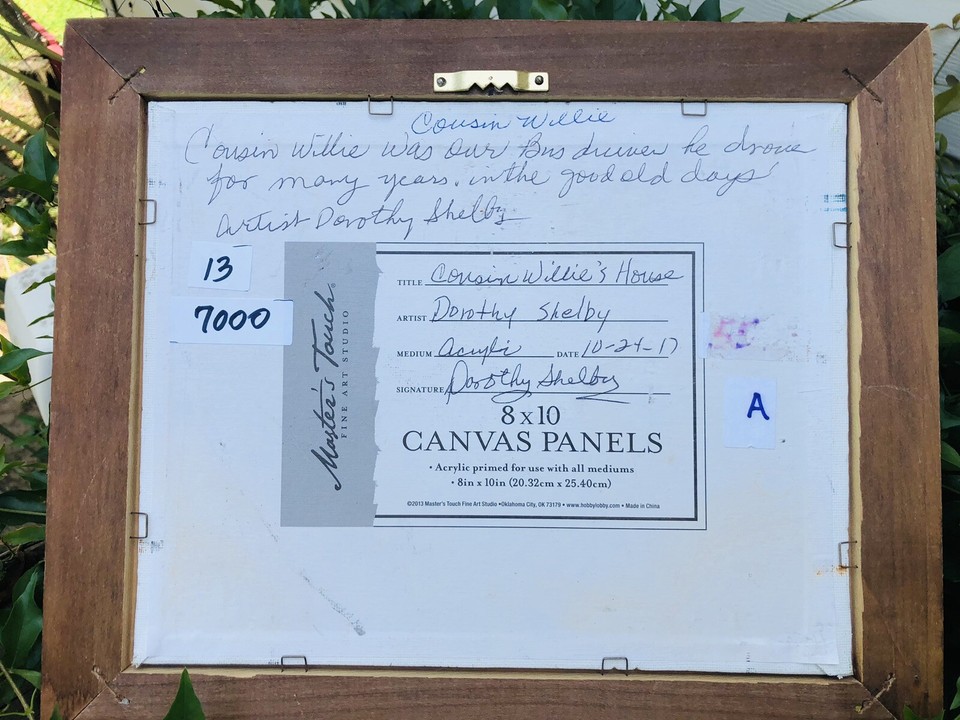 Cousin Willie
Cousin Willie was our Bus driver he drove
for many years. in the good old days
Artist Dorothy Shelby
13
7000
Master's Touch
FINE ART STUDIO
TITLE Cousin Willie's House
ARTIST Dorothy Shelby
MEDIUM Acrylic DATE 10-24-17
SIGNATURE Dorothy Shelby
8 x 10
CANVAS PANELS
• Acrylic primed for use with all mediums
• 8in x 10in (20.32cm x 25.40cm)
©2013 Master's Touch Fine Art Studio •Oklahoma City, OK 73179 • www.hobbylobby.com • Made in China
A